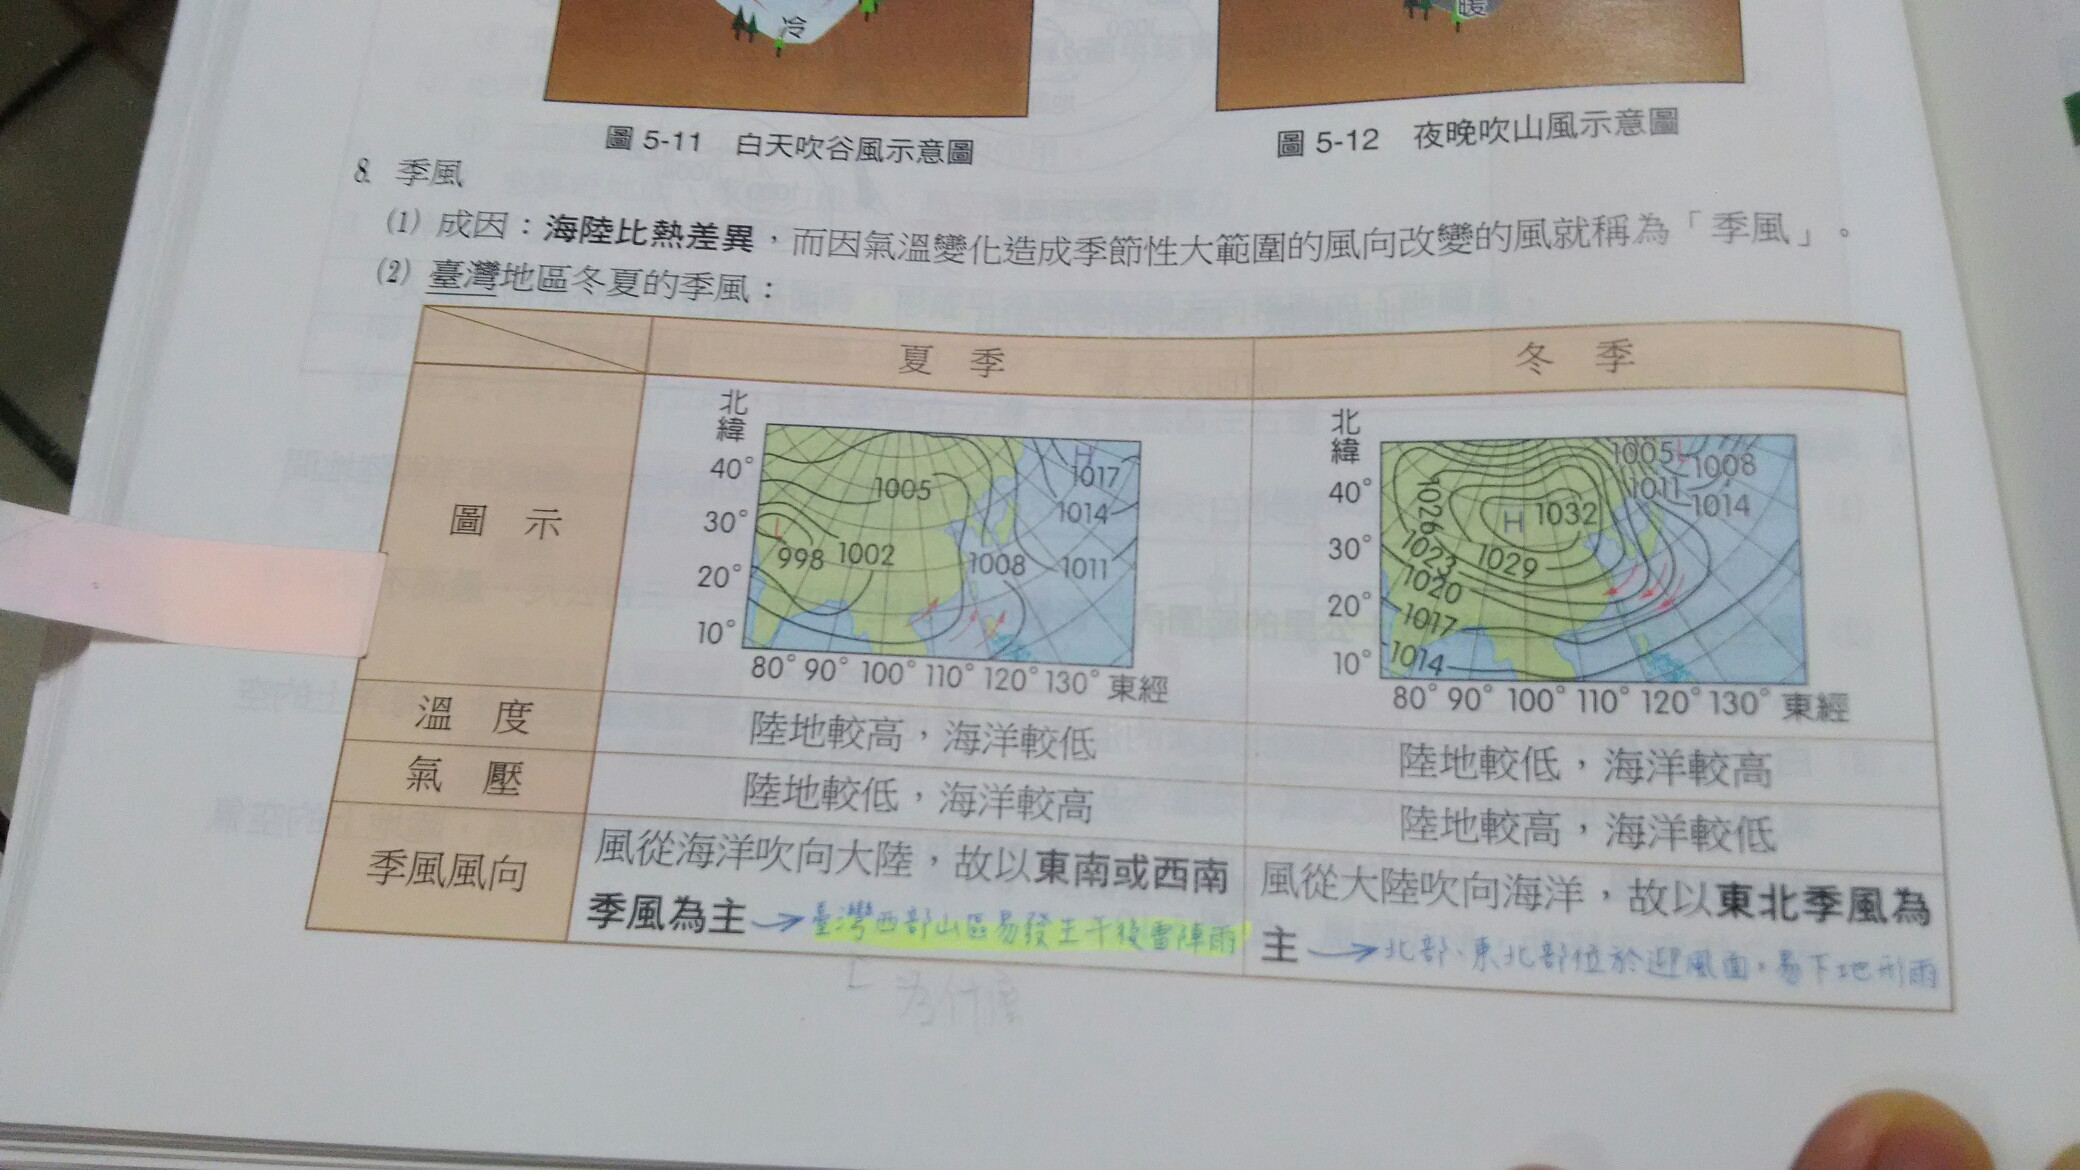 冷
暖
圖 5-11 白天吹谷風示意圖
圖 5-12 夜晚吹山風示意圖
8. 季風
(1) 成因：海陸比熱差異，而因氣溫變化造成季節性大範圍的風向改變的風就稱為「季風」。
(2) 臺灣地區冬夏的季風：
夏 季
冬 季
圖 示
北緯
40°
30°
20°
10°
80° 90° 100° 110° 120° 130° 東經
H
1017
1005
1014
L
998
1002
1008
1011
北緯
40°
30°
20°
10°
80° 90° 100° 110° 120° 130° 東經
1005
L
1008
1011
1014
1026
H
1032
1023
1029
1020
1017
1014
溫 度
陸地較高，海洋較低
陸地較低，海洋較高
氣 壓
陸地較低，海洋較高
陸地較高，海洋較低
季風風向
風從海洋吹向大陸，故以東南或西南
季風為主→臺灣西部山區易發生午後雷陣雨
風從大陸吹向海洋，故以東北季風為
主→北部、東北部位於迎風面，易下地形雨
為什麼